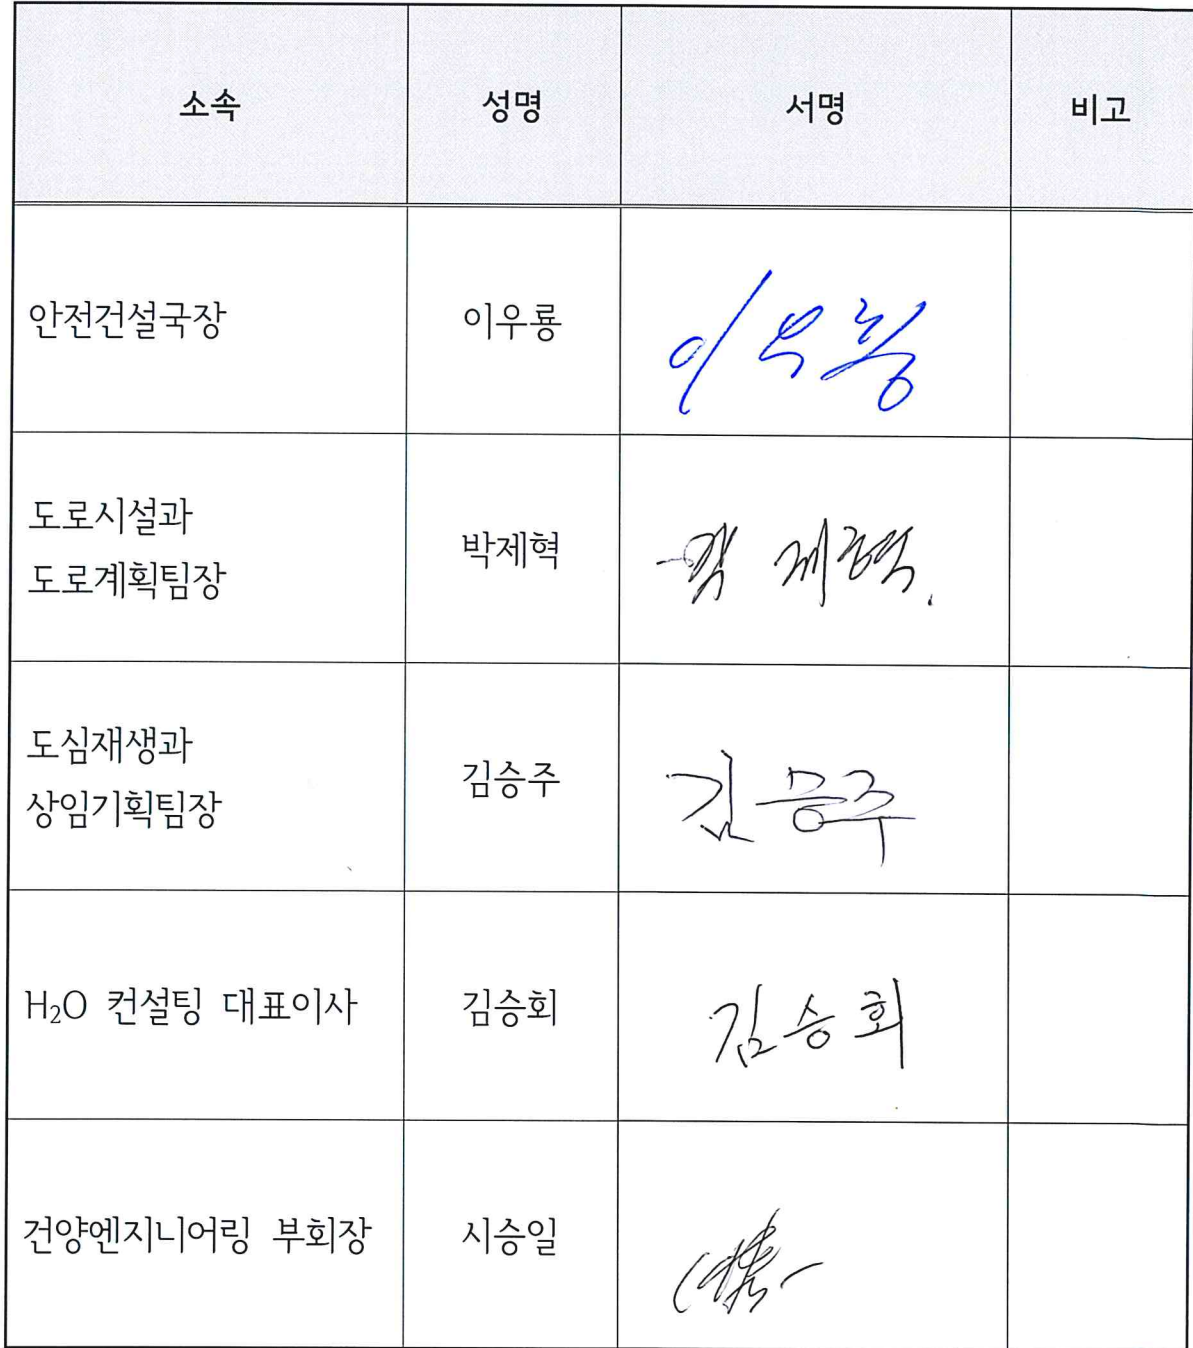 소속 성명 서명 비고
안전건설국장 이우룡 이우룡
도로시설과
도로계획팀장 박제혁 박제혁.
도심재생과
상임기획팀장 김승주 김승주
H₂O 컨설팅 대표이사 김승회 김승회
건양엔지니어링 부회장 시승일